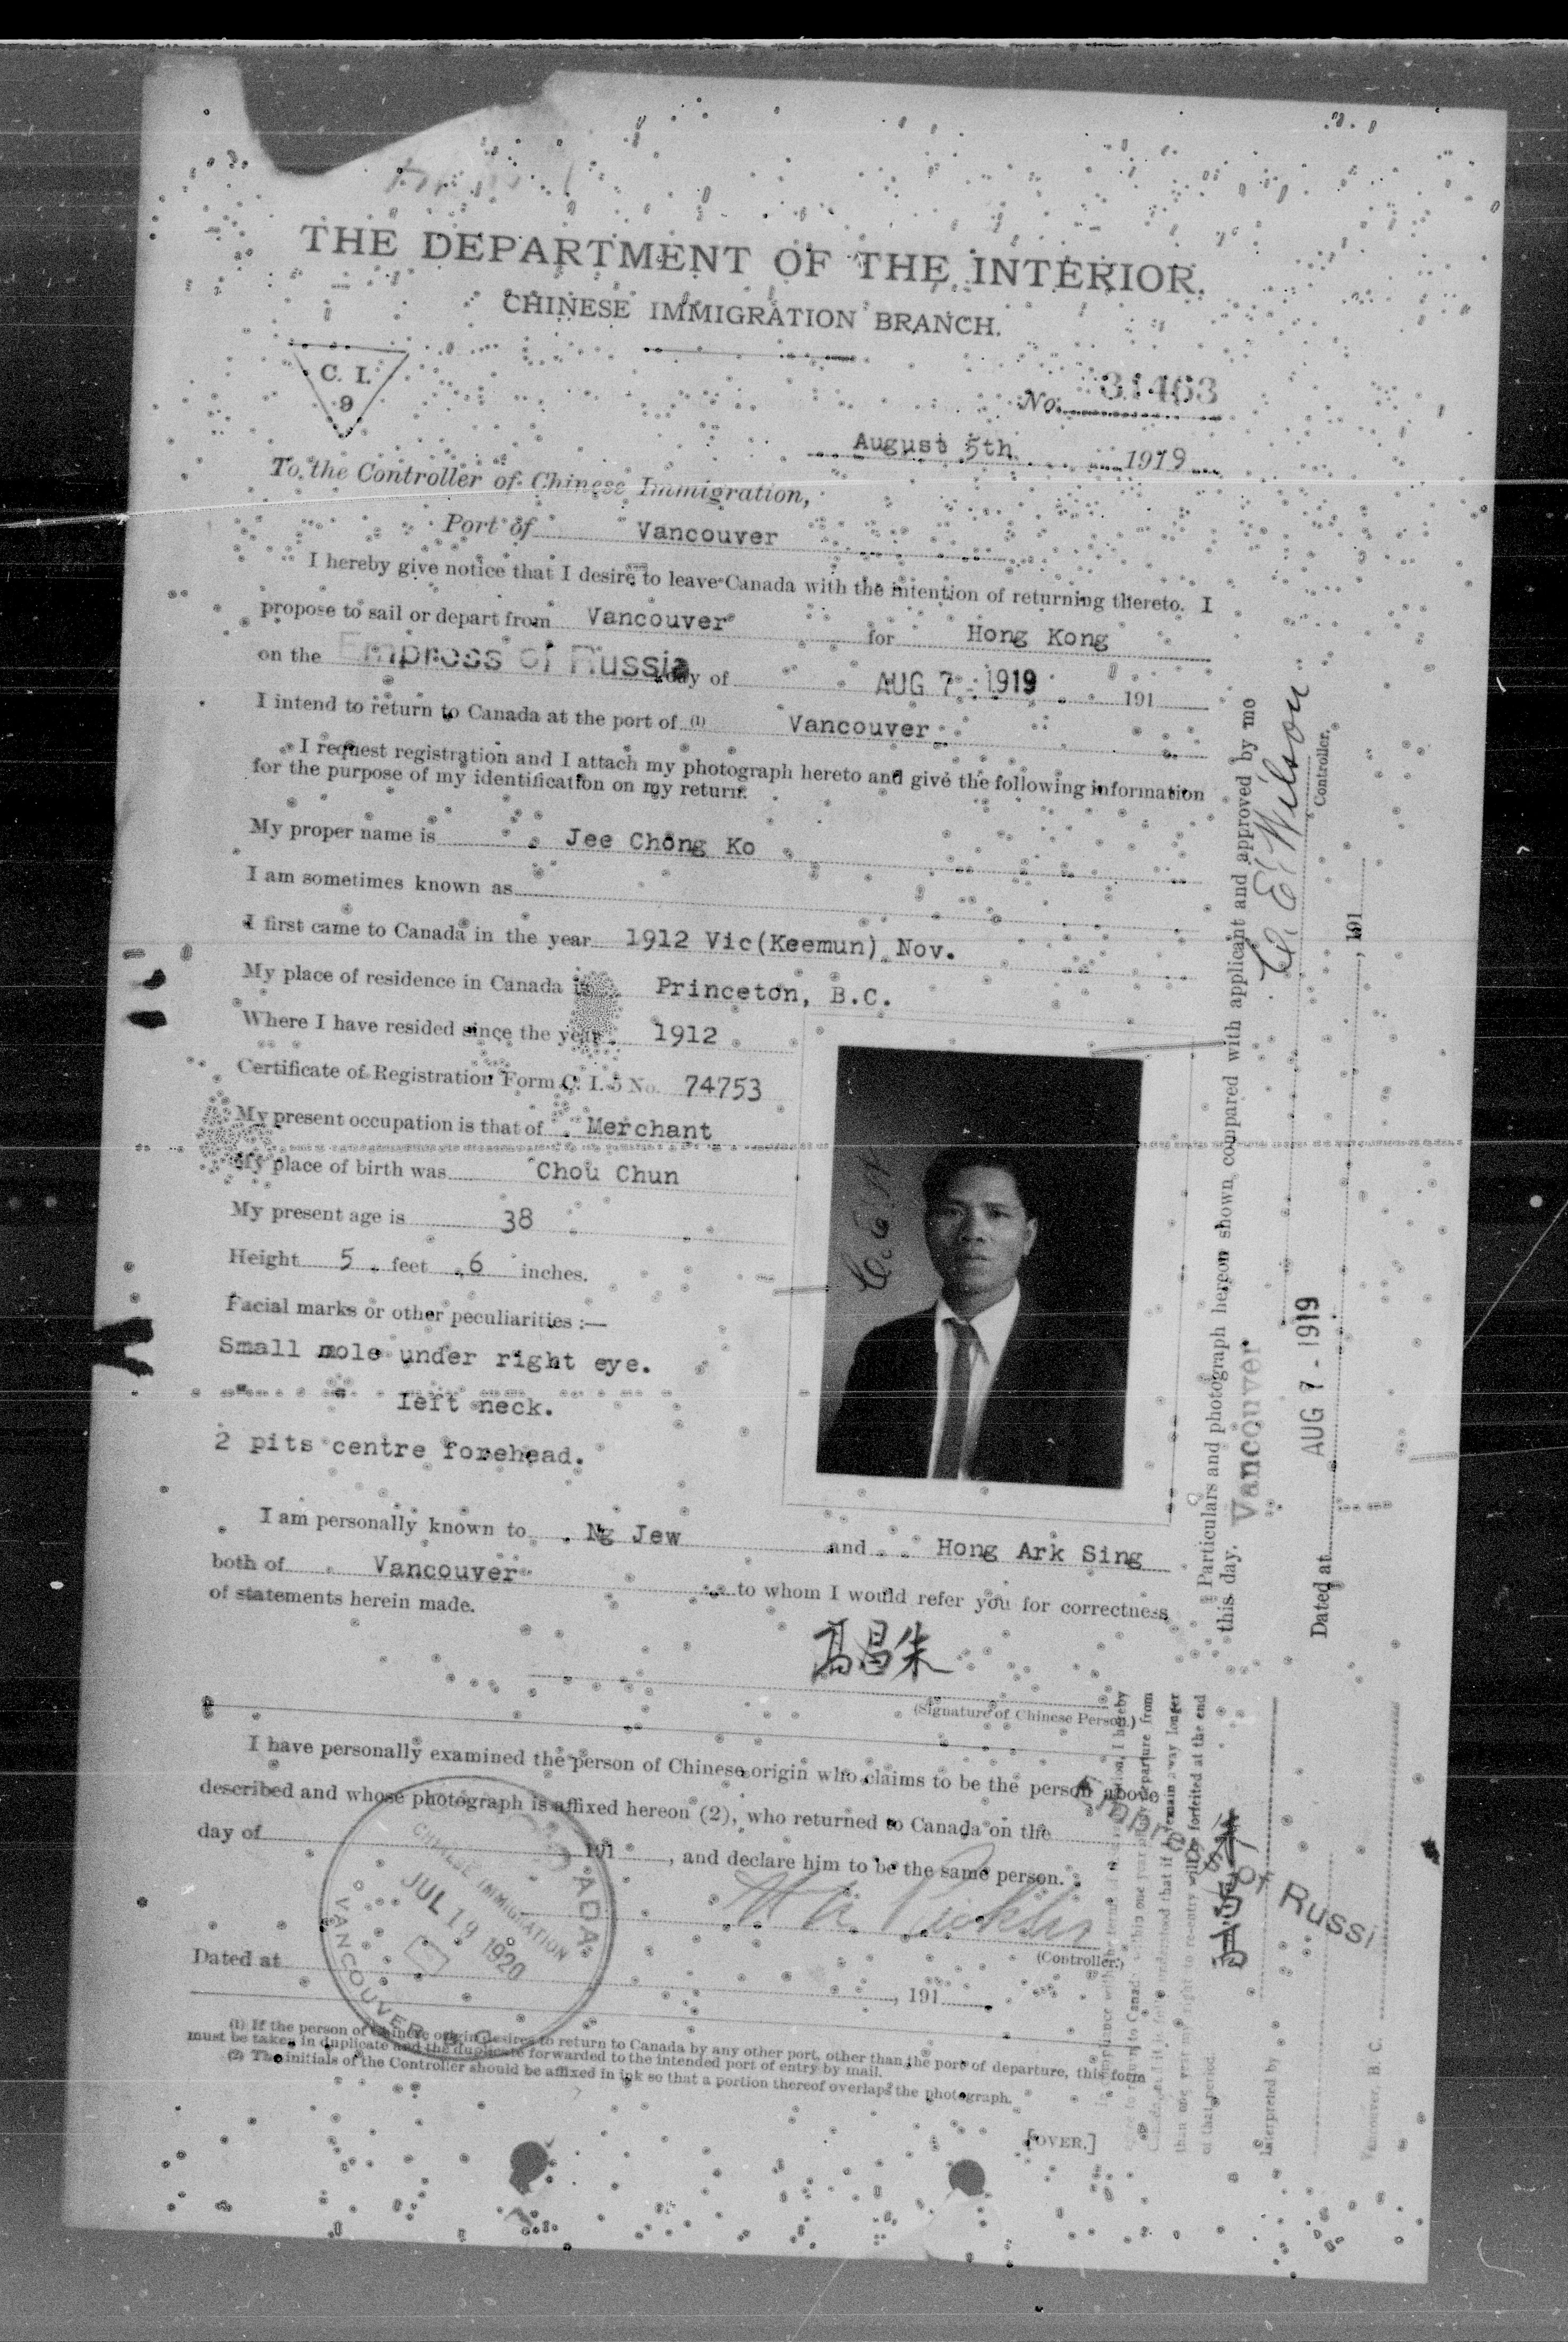 THE DEPARTMENT OF THE INTERIOR.
CHINESE IMMIGRATION BRANCH.
C. I.
9
No. 31463
August 5th 1919
To the Controller of Chinese Immigration,
Port of Vancouver
I hereby give notice that I desire to leave Canada with the intention of returning thereto. I
propose to sail or depart from Vancouver for Hong Kong
on the Empress of Russia day of AUG 7 - 1919 191
I intend to return to Canada at the port of (1) Vancouver
I request registration and I attach my photograph hereto and give the following information
for the purpose of my identification on my return.
My proper name is Jee Chong Ko
I am sometimes known as
I first came to Canada in the year 1912 Vic(Keemun) Nov.
My place of residence in Canada is Princeton, B.C.
Where I have resided since the year 1912
Certificate of Registration Form C. I. 5 No. 74753
My present occupation is that of Merchant
My place of birth was Chou Chun
My present age is 38
Height 5 feet 6 inches.
Facial marks or other peculiarities :—
Small mole under right eye.
" " left neck.
2 pits centre forehead.
C.E.W
I am personally known to Ng Jew and Hong Ark Sing
both of Vancouver to whom I would refer you for correctness
of statements herein made.
高昌朱
(Signature of Chinese Person.)
I have personally examined the person of Chinese origin who claims to be the person above
described and whose photograph is affixed hereon (2), who returned to Canada on the
day of 191 , and declare him to be the same person.
(Controller.)
Dated at , 191
CANADA
CHINESE IMMIGRATION
JUL 19 1920
VANCOUVER B.C.
(1) If the person of Chinese origin desires to return to Canada by any other port, other than the port of departure, this form
must be taken in duplicate and the duplicate forwarded to the intended port of entry by mail.
(2) The initials of the Controller should be affixed in ink so that a portion thereof overlaps the photograph.
[OVER.]
Particulars and photograph hereon shown, compared with applicant and approved by me
this day. Vancouver
C. E. Wilson
Controller.
Dated at AUG 7 - 1919 , 191
Empress of Russi
than one year my right to re-entry will be forfeited at the end
of that period.
Interpreted by
Vancouver, B. C.